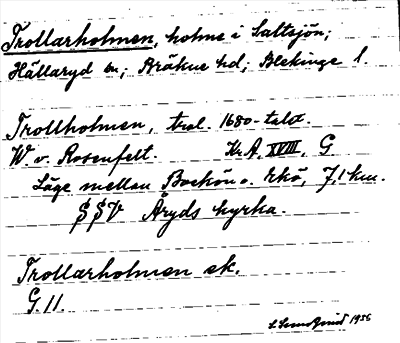 Trollarholmen, holme i Saltsjön;
Hällaryd sn; Bräkne hd; Blekinge l.
Trollholmen, trol. 1680-talet.
W v. Rosenfelt. Kr.A, XVIII, G
Läge mellan Bockön o. Ekö, 7,1 km.
SSV Åryds kyrka.
Trollarholmen ek.
G. 11.
1956